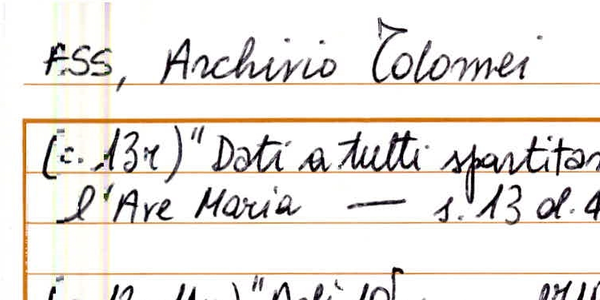 ASS, Archivio Tolomei
(c. 13r) "Dati a tutti
l'Ave Maria — s. 13 d. 4